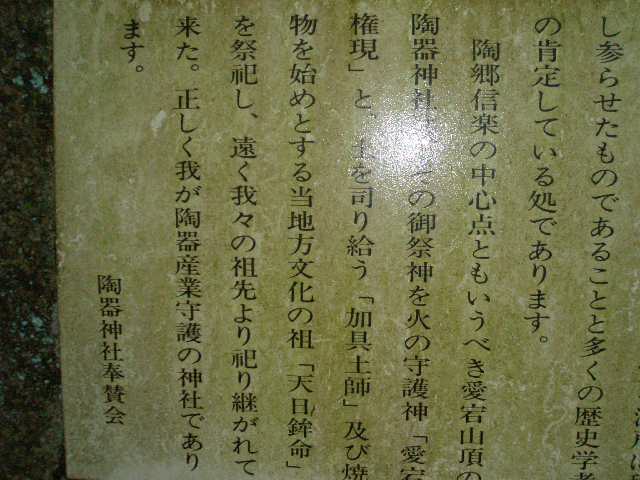 し参らせたものであることと多くの歴史学者
の肯定している処であります。
陶郷信楽の中心点ともいうべき愛宕山頂の
陶器神社は、その御祭神を火の守護神「愛宕
権現」と、土を司り給う「加具土師」及び焼
物を始めとする当地方文化の祖「天日鉾命」
を祭祀し、遠く我々の祖先より祀り継がれて
来た。正しく我が陶器産業守護の神社であり
ます。
陶器神社奉賛会